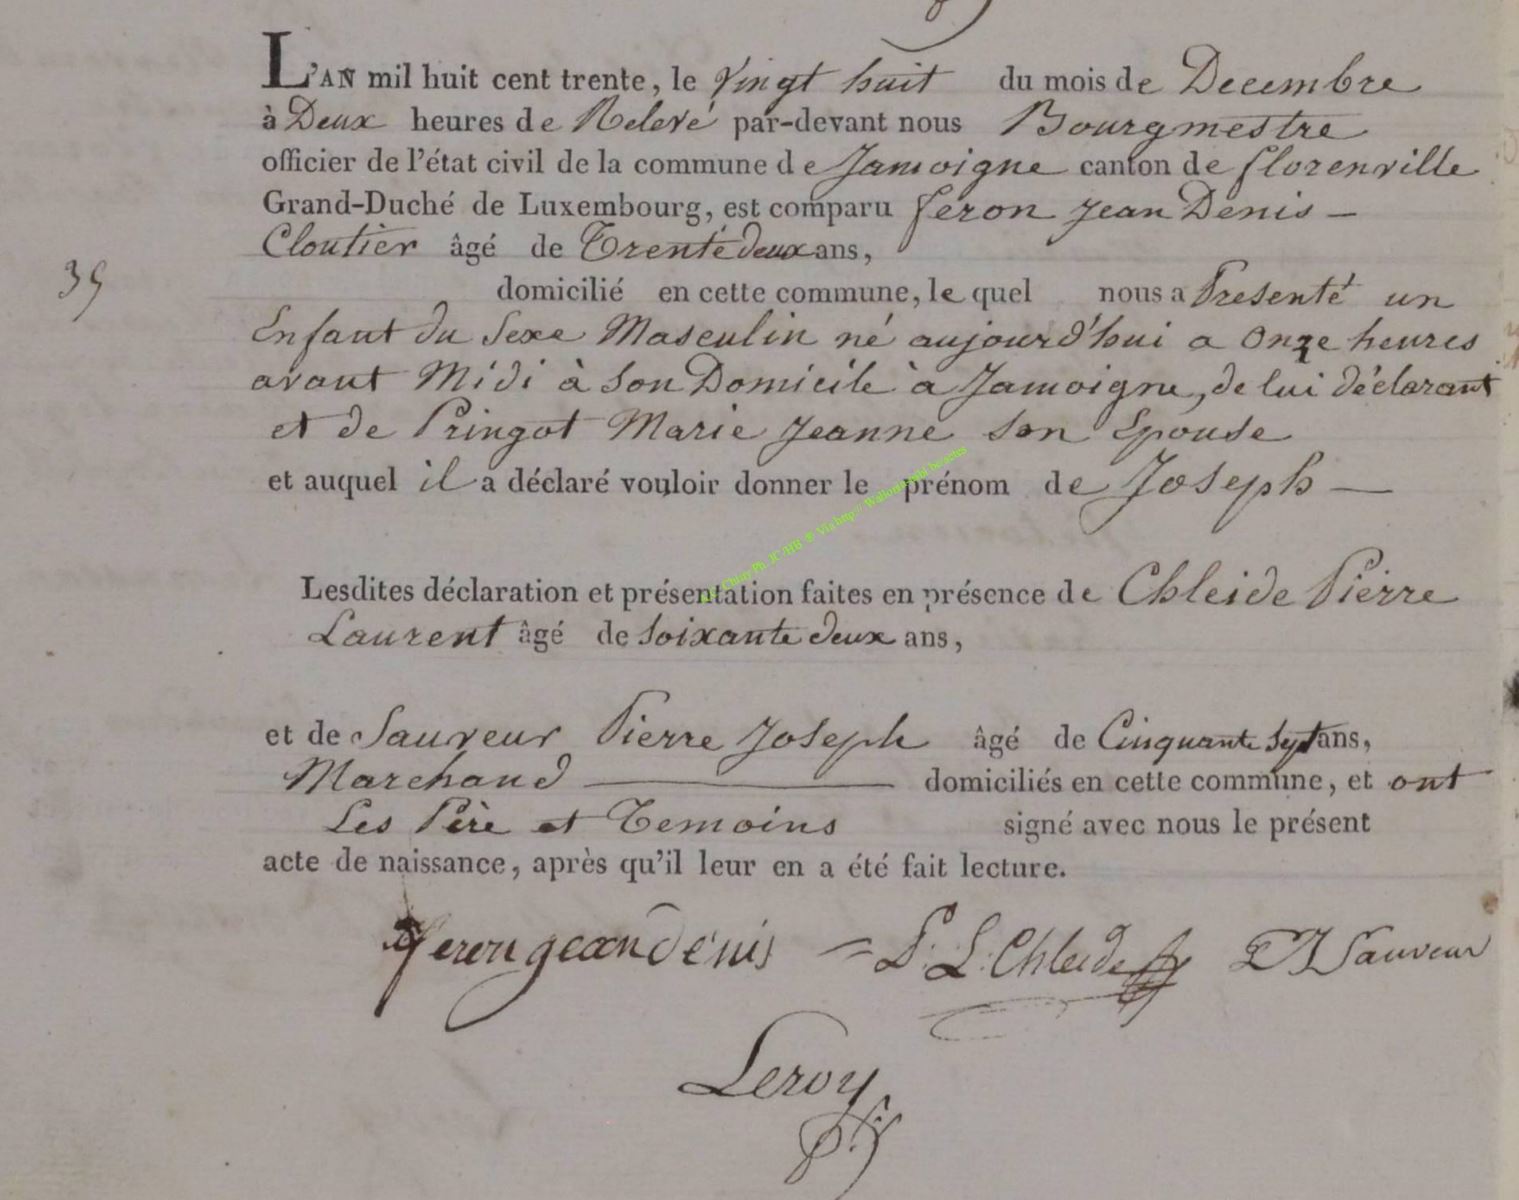 L'AN mil huit cent trente, le vingt huit du mois de Decembre
à Deux heures de Relevé par-devant nous Bourgmestre
officier de l'état civil de la commune de Jamoigne canton de florenville
Grand-Duché de Luxembourg, est comparu feron Jean Denis —
Cloutier âgé de Trente deux ans,
35
domicilié en cette commune, le quel nous a Presenté un
Enfant du Sexe Masculin né aujourd'hui a Onze heures
avant Midi à Son Domicile à Jamoigne, de lui déclarant
et de Pringot Marie Jeanne son Epouse
et auquel il a déclaré vouloir donner le prénom de Joseph —
Lesdites déclaration et présentation faites en présence de Chleide Pierre
Laurent âgé de Soixante deux ans,
et de Sauveur Pierre Joseph âgé de Cinquante Sept ans,
Marchand — domiciliés en cette commune, et ont
Les Père et Temoins signé avec nous le présent
acte de naissance, après qu'il leur en a été fait lecture.
feron jean denis = P: L: Chleide PJ Sauveur
Leroy